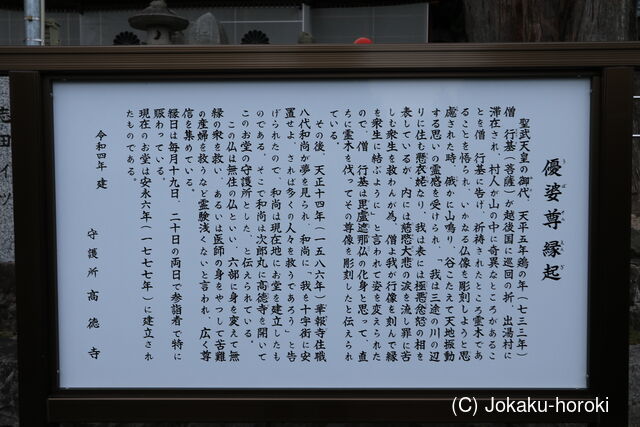 優婆尊縁起
うばそんえんぎ
聖武天皇の御代、天平五年鶏の年（七三三年）
僧　行基（菩薩）が越後国に巡回の折、出湯村に
滞在され、村人が山の中に奇異なところがあるこ
とを僧　行基に告げ、祈祷されたところ霊木であ
ることを悟られ、いかなる仏像を彫刻しようと思
慮された時、俄かに山鳴り、谷こたえて天地振動
する思いの霊感を受けられ、「我は三途の川の辺
りに住む悪衣姥なり、我は表には極悪忿怒の相を
表しているが、内には慈愍大悲の涙を流し罪に苦
しむ衆生を救わんが為、僧よ我が行像を刻んで縁
を衆生に結ぶように」と言われて姿を変えられた
ので、僧　行基は毘盧遮那仏の化身と思って、直
ちに霊木を伐ってその尊像を彫刻したと伝えられ
ている。
その後、天正十四年（一五八六年）華報寺住職
八代和尚が夢を見られ、和尚に「我を十字街に安
置せよ、されば多くの人々を救うであろう」と告
げられたので、和尚は現在地にお堂を建立したも
のである。そこで和尚は次郎丸に高徳寺を開いて
このお堂の守護所とした、と伝えられている。
この仏は無住の仏といい、六部に身を変えて無
縁の衆を救い、あるいは医師の身をやつして苦難
の産婦を救うなど霊験浅くないと言われ、広く尊
信を集めている。
縁日は毎月十九日、二十日の両日で参詣者で特に
賑わっている。
現在のお堂は安永六年（一七七七年）に建立され
たものである。
令和四年　建
守護所　高徳寺
(C) Jokaku-horoki